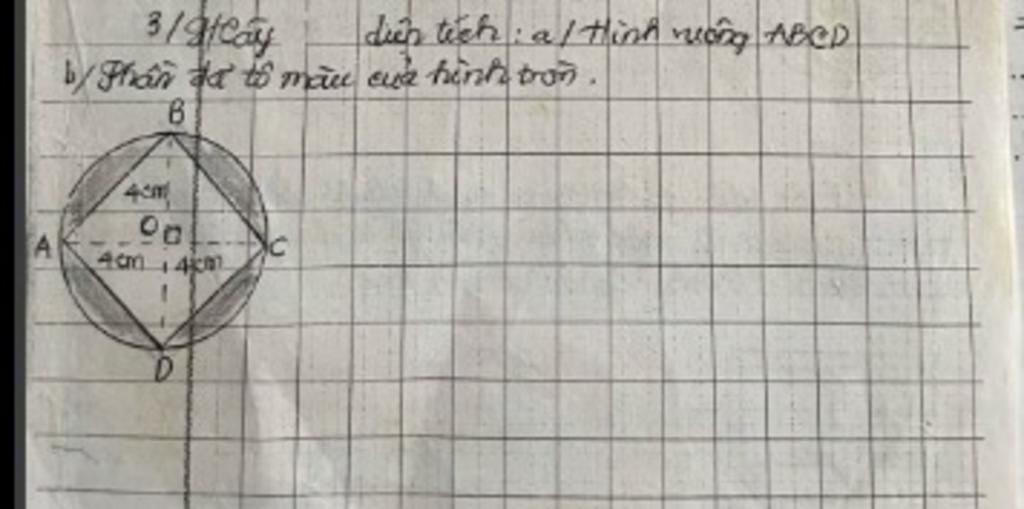 3/ Hãy diện tích : a/ Hình vuông ABCD
b/ Phần đã tô màu của hình tròn .
B
4cm
O
A
C
4cm
4cm
D